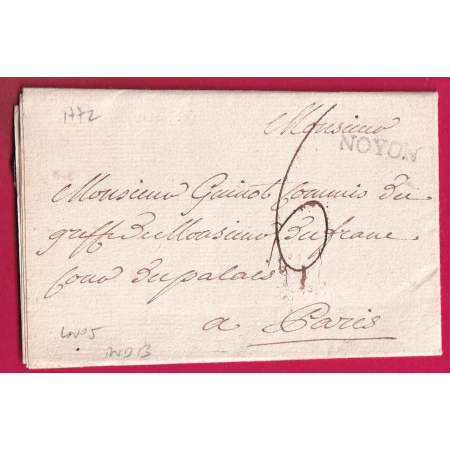 1772
Monsieur
NOYON
Monsieur Guinot Commis du
greffe de Monsieur Dufranc
Cour du palais
6
a Paris
IND 13